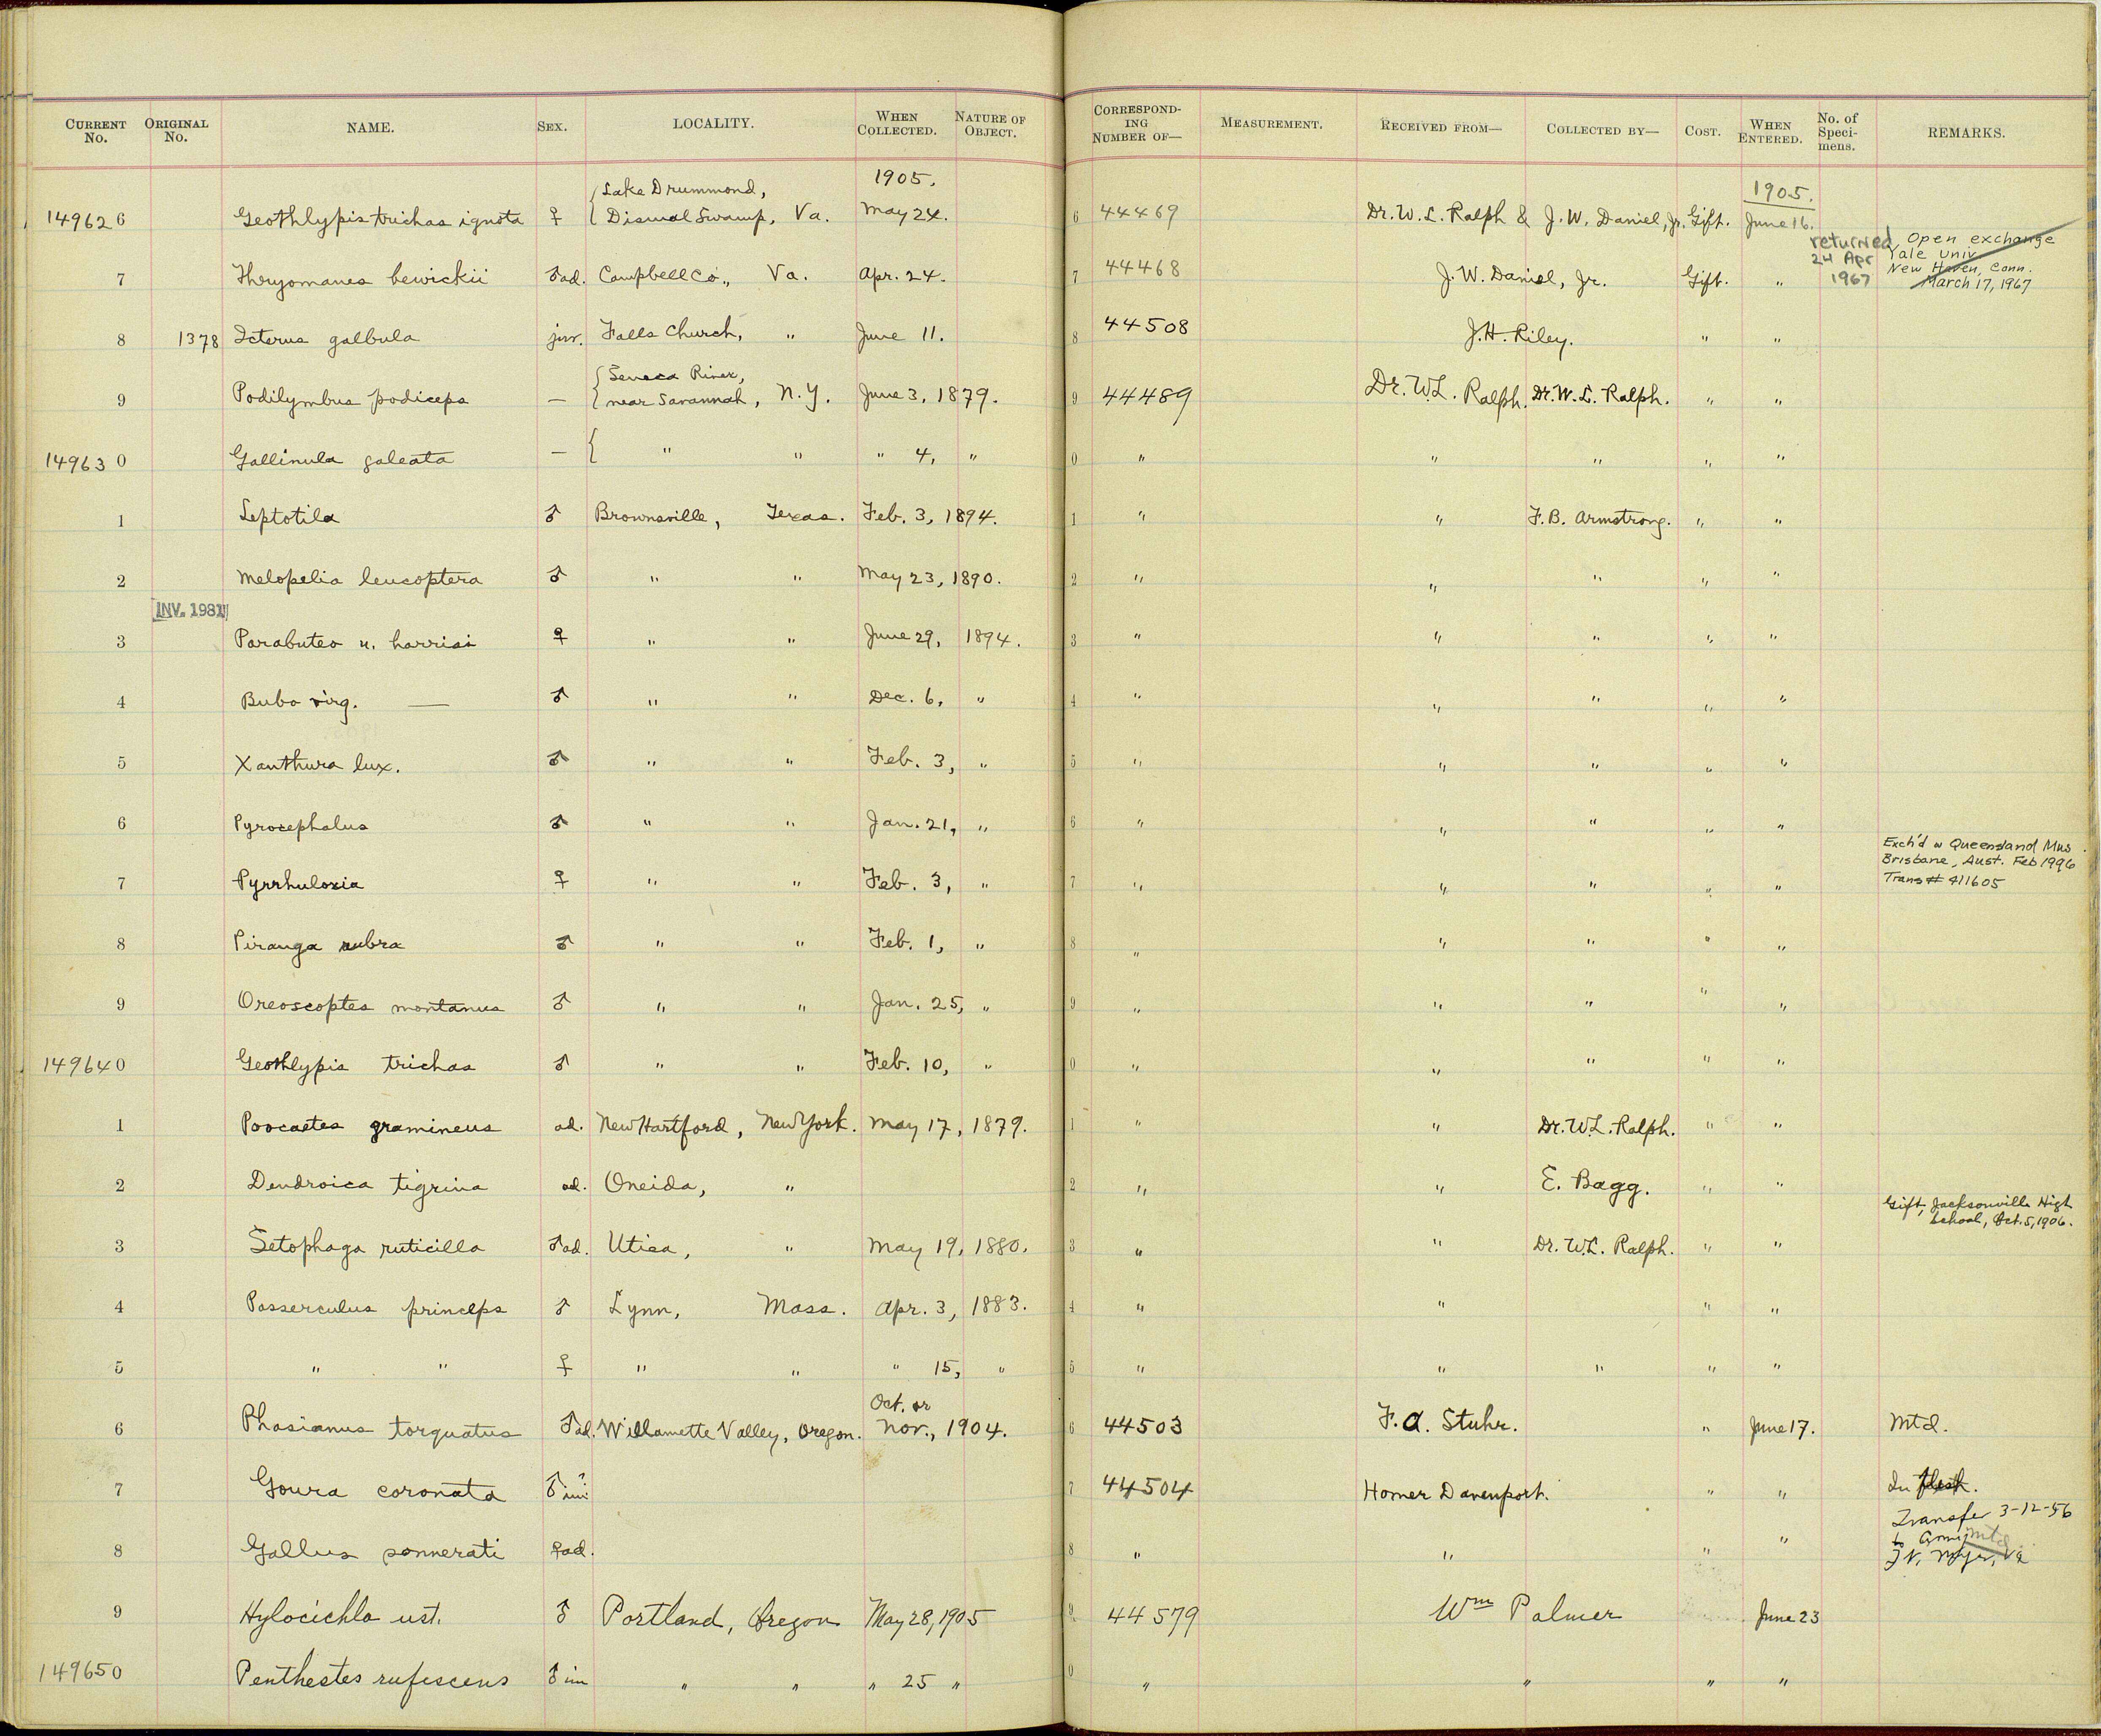 CURRENT No. ORIGINAL No. NAME. SEX. LOCALITY. WHEN COLLECTED. NATURE OF OBJECT. CORRESPONDING NUMBER OF— MEASUREMENT. RECEIVED FROM— COLLECTED BY— COST. WHEN ENTERED. No. of Specimens. REMARKS.
1905. 1905.
Lake Drummond,
149626 Geothlypis trichas ignota ♀ Dismal Swamp, Va. May 24. 6 44469 Dr. W. L. Ralph & J. W. Daniel, Jr. Gift. June 16.
returned 24 Apr 1967 Open exchange
Yale Univ
New Haven, Conn.
March 17, 1967
7 Thryomanes bewickii ♂ad. Campbell Co., Va. Apr. 24. 7 44468 J. W. Daniel, Jr. Gift. "
8 1378 Icterus galbula juv. Falls Church, " June 11. 8 44508 J. H. Riley. " "
Seneca River,
9 Podilymbus podiceps — near Savannah, N.Y. June 3, 1879. 9 44489 Dr. W. L. Ralph. Dr. W. L. Ralph. " "
149630 Gallinula galeata — { " " " 4, " 0 " " " " "
1 Leptotila ♂ Brownsville, Texas. Feb. 3, 1894. 1 " " F. B. Armstrong. " "
2 Melopelia leucoptera ♂ " " May 23, 1890. 2 " " " " "
INV. 1981
3 Parabuteo u. harrisi ♀ " " June 29, 1894. 3 " " " " "
4 Bubo virg. — ♂ " " Dec. 6, " 4 " " " " "
5 Xanthura lux. ♂ " " Feb. 3, " 5 " " " " "
6 Pyrocephalus ♂ " " Jan. 21, " 6 " " " " "
Exch'd w Queensland Mus.
Brisbane, Aust. Feb 1996
Trans # 411605
7 Pyrrhuloxia ♀ " " Feb. 3, " 7 " " " " "
8 Piranga rubra ♂ " " Feb. 1, " 8 " " " " "
9 Oreoscoptes montanus ♂ " " Jan. 25, " 9 " " " " "
149640 Geothlypis trichas ♂ " " Feb. 10, " 0 " " " " "
1 Poocaetes gramineus ad. New Hartford, New York. May 17, 1879. 1 " " Dr. W. L. Ralph. " "
2 Dendroica tigrina ad. Oneida, " 2 " " E. Bagg. " "
Gift, Jacksonville High
School, Oct. 5, 1906.
3 Setophaga ruticilla ♂ad. Utica, " May 19, 1880. 3 " " Dr. W. L. Ralph. " "
4 Passerculus princeps ♂ Lynn, Mass. Apr. 3, 1883. 4 " " " "
5 " " ♀ " " " 15, " 5 " " " " "
Oct. or
6 Phasianus torquatus ♂ad. Willamette Valley, Oregon. Nov., 1904. 6 44503 F. A. Stuhr. " June 17. Mtd.
7 Goura coronata ♂ im? 7 44504 Homer Davenport. " " In flesh.
Transfer 3-12-56
to Army Mtd.
Ft. Myer, Va
8 Gallus sonnerati ♀ad. 8 " " " "
9 Hylocichla ust. ♂ Portland, Oregon May 28, 1905 9 44579 Wm Palmer June 23
149650 Penthestes rufescens ♂ im " " " 25 " 0 " " " "